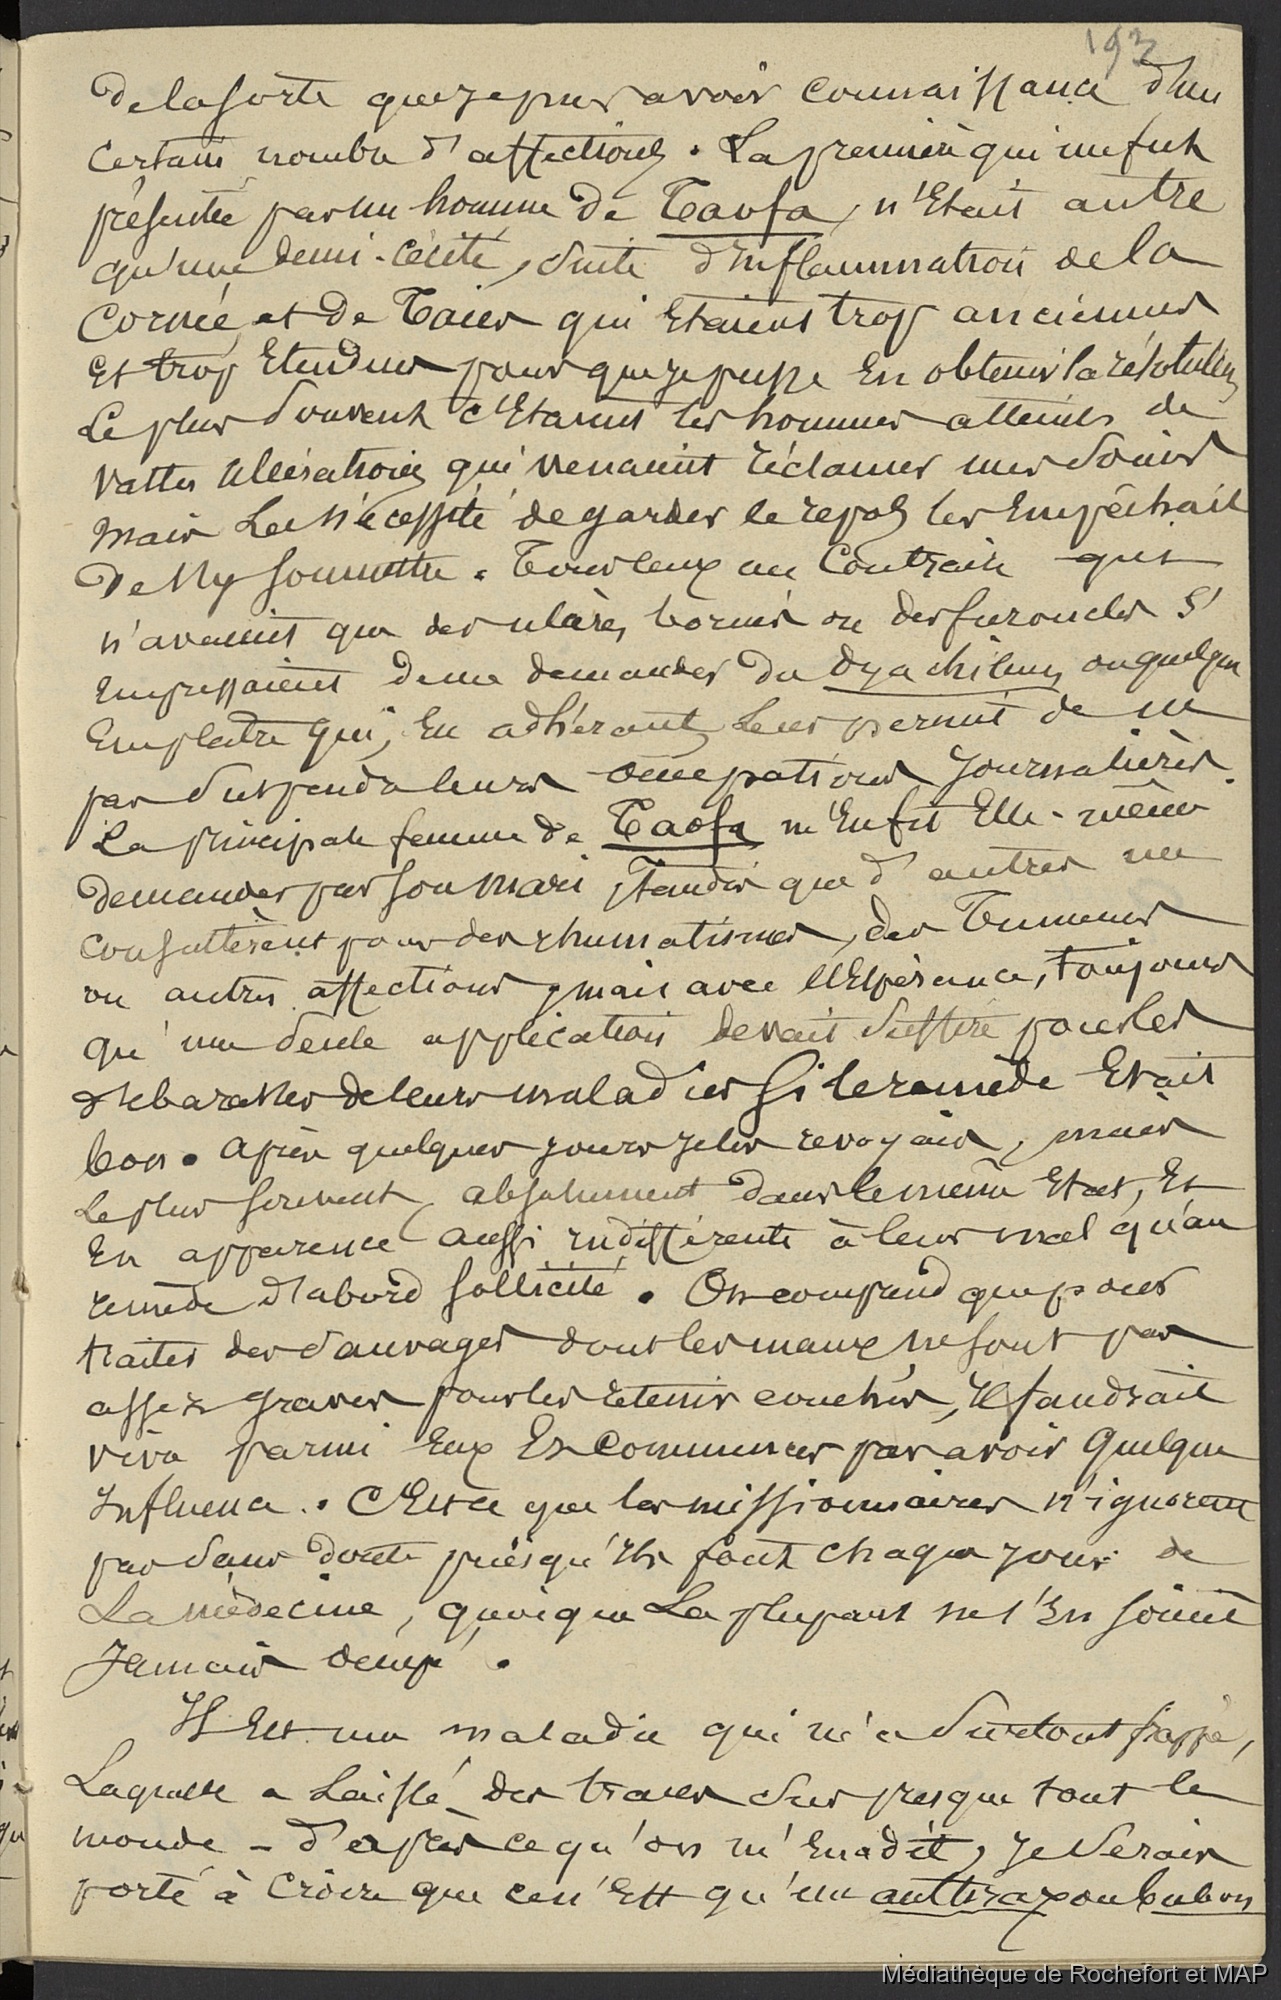 193
De la sorte que je pus avoir connaissance d'un
certain nombre d'affections. La première qui me fut
présentée par un homme de Taofa, n'Etait autre
qu'une demi-cécité, suite d'Inflammation de la
Cornée, et de Taies qui Etaient trop anciennes
Et trop Etendues pour que je pusse En obtenir la résolution
Le plus souvent c'Etaient les hommes atteints de
vastes ulcérations qui venaient réclamer mes soins
mais La nécessité de garder le repos les Empêchait
De s'y soumettre. Tous ceux au Contraire qui
n'avaient que des ulcères bornés ou des furoncles s'
Empressaient de me demander du Dyachilum ou quelque
Emplatre qui, En adhérant, Leur permit de ne
pas suspendre leurs occupations Journalières.
La principale femme de Taofa m'En fit Elle-même
demander par son mari, tandis que d'autres me
consultèrent pour des rhumatismes, des Tumeurs
ou autres affections, mais avec l'Espérance, toujours
qu'une seule application devait suffire pour les
débarasser de leurs maladies si le remède Etait
bon. Après quelques jours je les revoyais, mais
Le plus souvent absolument dans le même Etat, Et
En apparence aussi indifférents à leur mal qu'au
remède d'abord sollicité. On comprend que pour
traiter des sauvages dont les maux ne sont pas
assez graves pour les retenir couchés, Il faudrait
vivre parmi Eux Et Commencer par avoir quelque
Influence. C'Est ce que les missionnaires n'ignorent
pas sans doute puisqu'Ils font chaque jour de
La médecine, quoique La plupart ne s'En soient
Jamais occupé.
Il Est une maladie qui m'a surtout frappé,
Laquelle a Laissé des traces sur presque tout le
monde - D'après ce qu'on m'En a dit, je serais
porté à Croire que ce n'Est qu'un anthrax ou bubon
Médiathèque de Rochefort et MAP